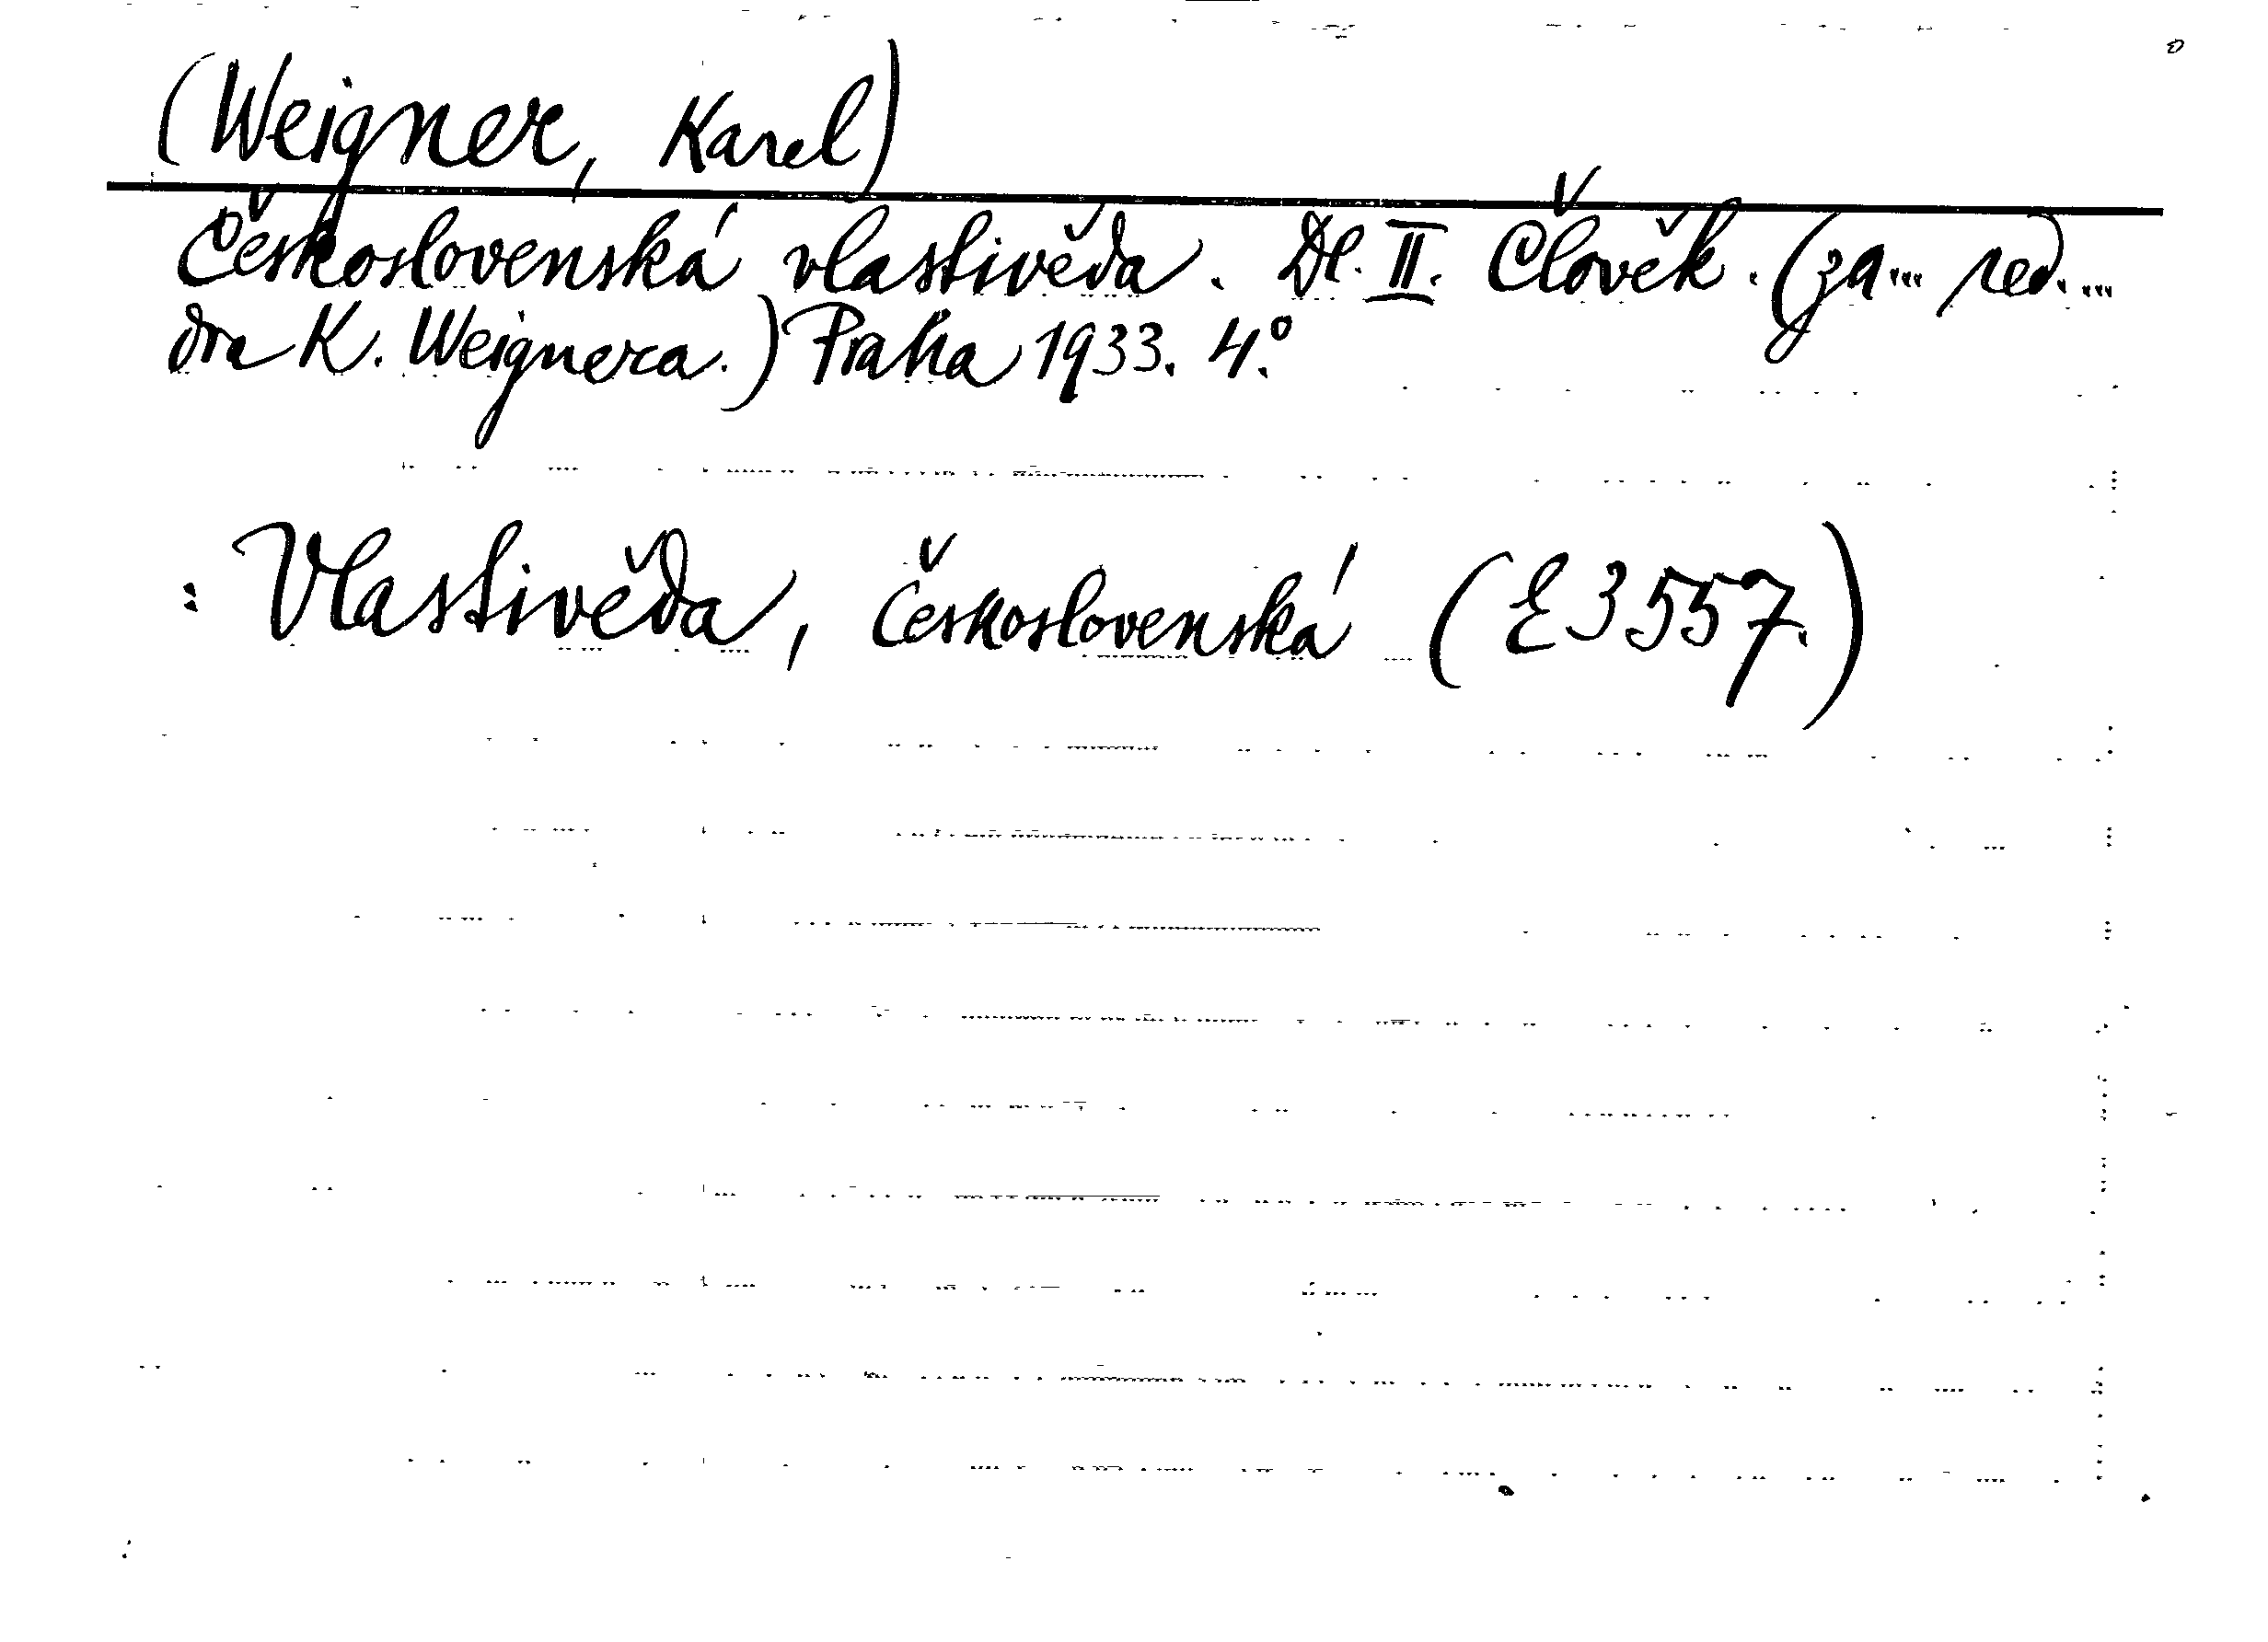 (Weigner, Karel)
Československá vlastivěda. Dl. II. Člověk. (za... red....
dra K. Weignera.) Praha 1933. 4°.
: Vlastivěda, Československá (E 3557.)